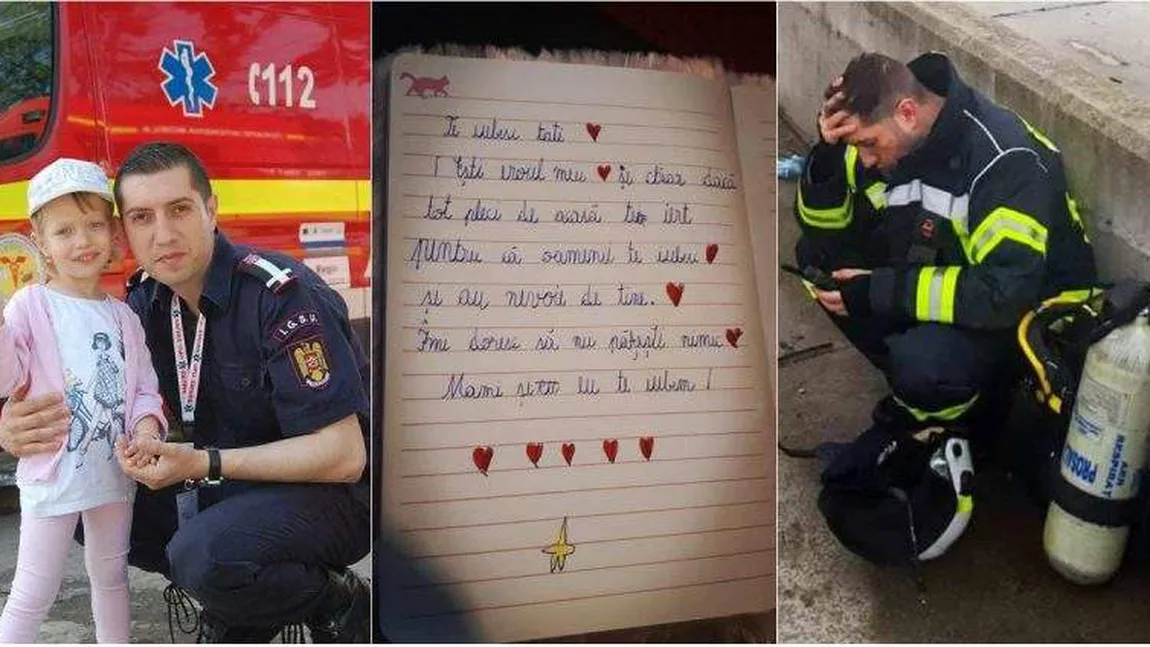 112
I.G.S.U.
Te iubesc tati
! Ești eroul meu și chiar dacă
tot pleci de acasă te iert
pentru că oamenii te iubesc
și au nevoie de tine.
Îmi doresc să nu pățești nimic
Mami și eu te iubim !
AER
RESPIRAT